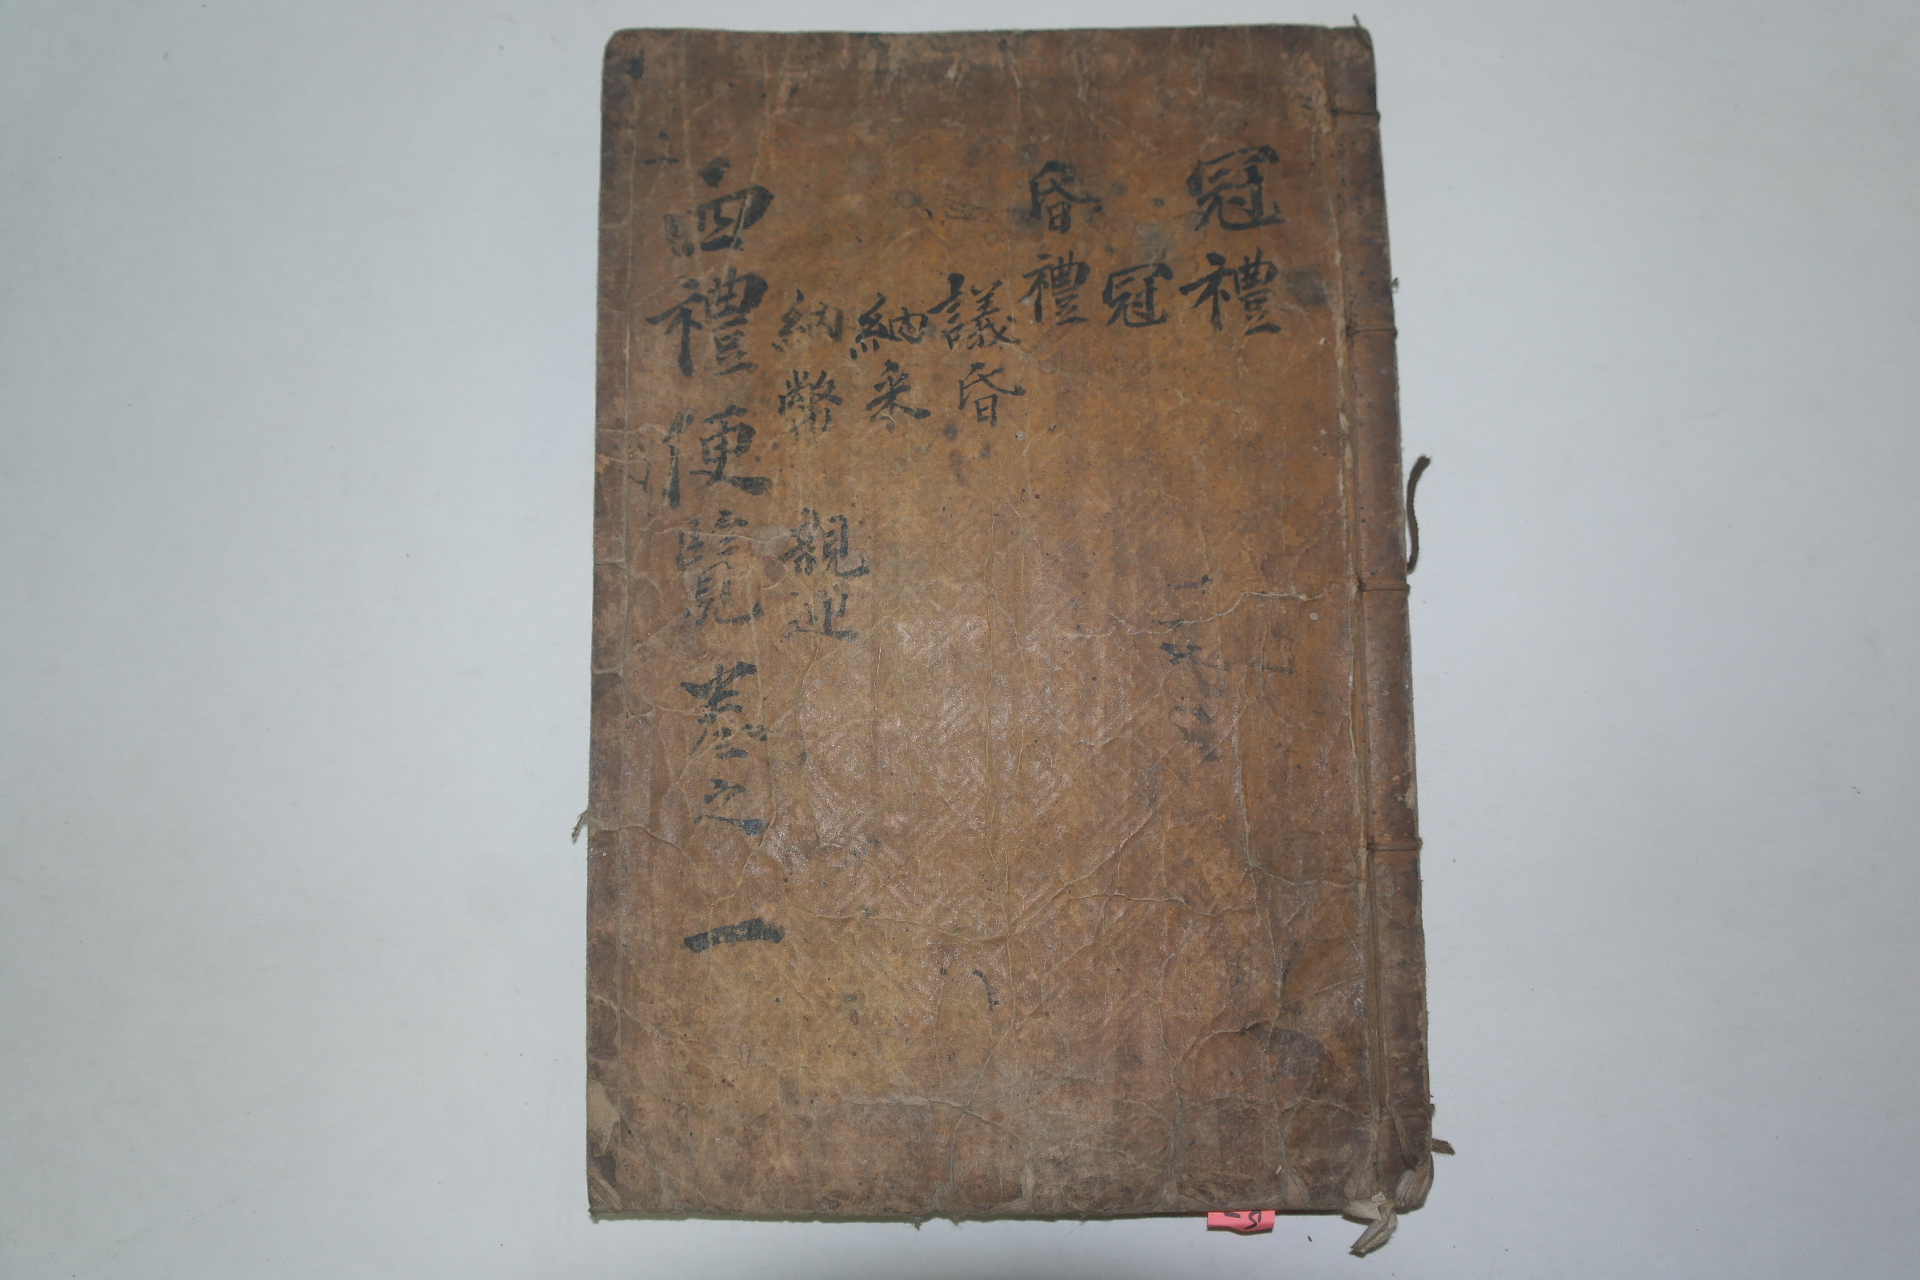 冠禮
冠
昏禮
議昏
納采
納幣 親迎
四禮便覽 卷之 一